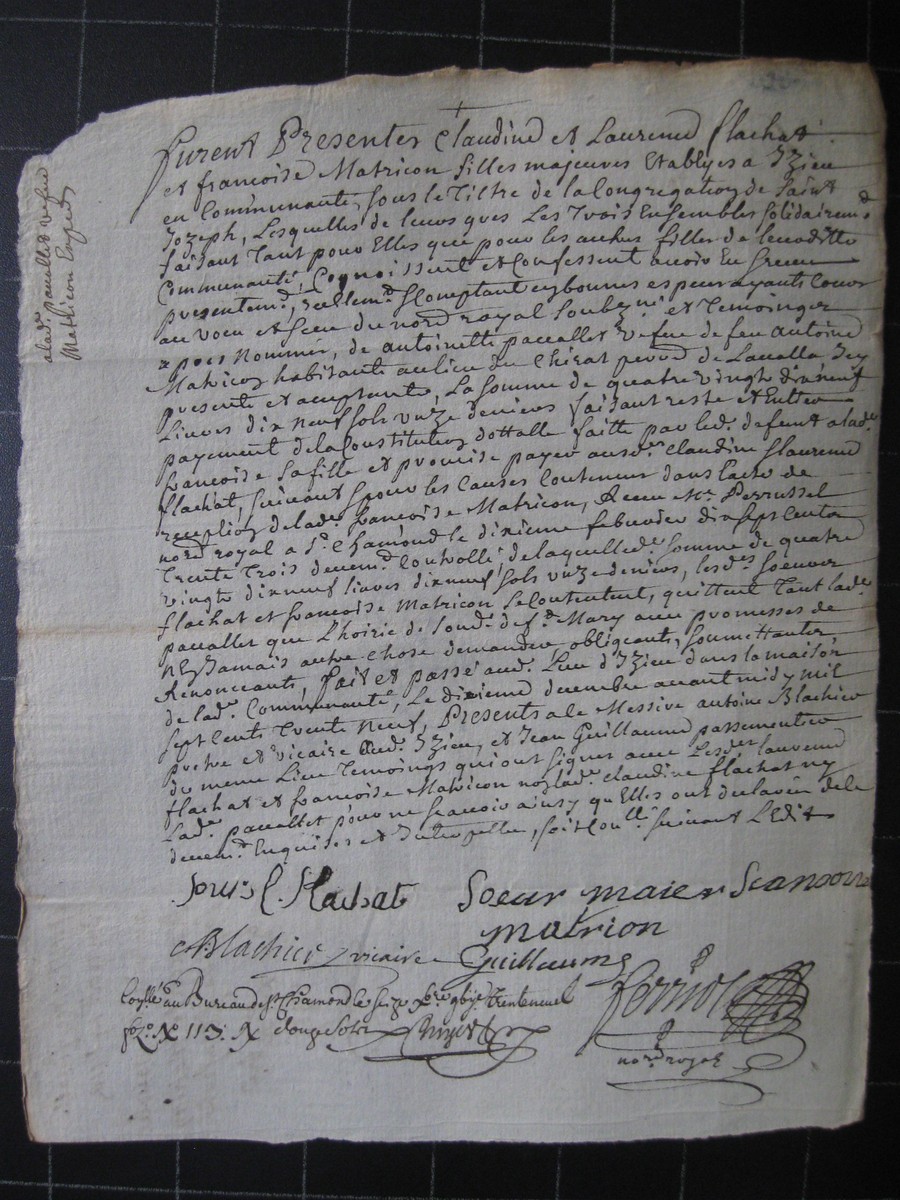 alad. pacallet vefue
Matricon Expedié
furent Presentes Claudine et Laurence flachat
et francoise Matricon filles majeures Etablyes a Izieu
en Communauté, sous le Tiltre de la Congregation de saint
Jozeph, Lesquelles de leurs gres Les Trois Ensembles solidairemt
faisant Tant pour Elles que pour les autres filles de leurditte
Communauté, Cognoissent et Confessent avoir En Receu
presentemt, reellemt, & Comptant
au veu et sceu du nore royal soubzne et Temoings
apres Nommés, de antoinette pacallet vefue de feu antoine
Matricon habitante au lieu du Chirat perrod de Lavalla Icy
presente et acceptante, La somme de quatre vingts dix neuf
Livres dix neuf sols unze deniers faisant reste et Entier
payement de la Constitution dottalle faitte par led. defunt a lad.
francoise sa fille et promise payer ausd. Claudine & laurence
flachat, suivant & pour les Causes Contenues dans l'acte de
reception de lad. francoise Matricon, Receu Me Perrussel
nore royal a St Chamond le dixieme febvrier dix sept Cents
Trente Trois devemt Controllé, de laquelle de somme de quatre
vingts dix neuf livres dix neuf sols unze deniers, lesd. soeurs
flachat et francoise Matricon se Contentent, quittent Tant lad.
pacallet que L'hoirie de sond. deft Mary avec promesses de
N'En Jamais autre chose demander, obligeants, soumettantes,
Renonceants, fait et passé aud. Lieu d'Izieu dans la maison
de lad. Communauté, Le dixieme decembre avant midy mil
sept Cents Trente Neuf, Presents a ce Messire antoine Blachier
pretre et vicaire dud. Izieu, et Jean Guillaume passementier
du meme Lieu Temoings qui ont signes avec Lesd. laurence
flachat et francoise Matricon non lad. Claudine flachat ny
Lad. pacallet pour ne scavoir ainsy qu'Elles ont declarées de ce
devemt Enquises et Interpellée, soit Conllé suivant L'Edit
soeur l. flachat soeur maier
matrion
Blachier vicaire Guillaume
Conllé au Bureau de St Chamond le seize xbre trenteneuf
113 douze sols
nore royal